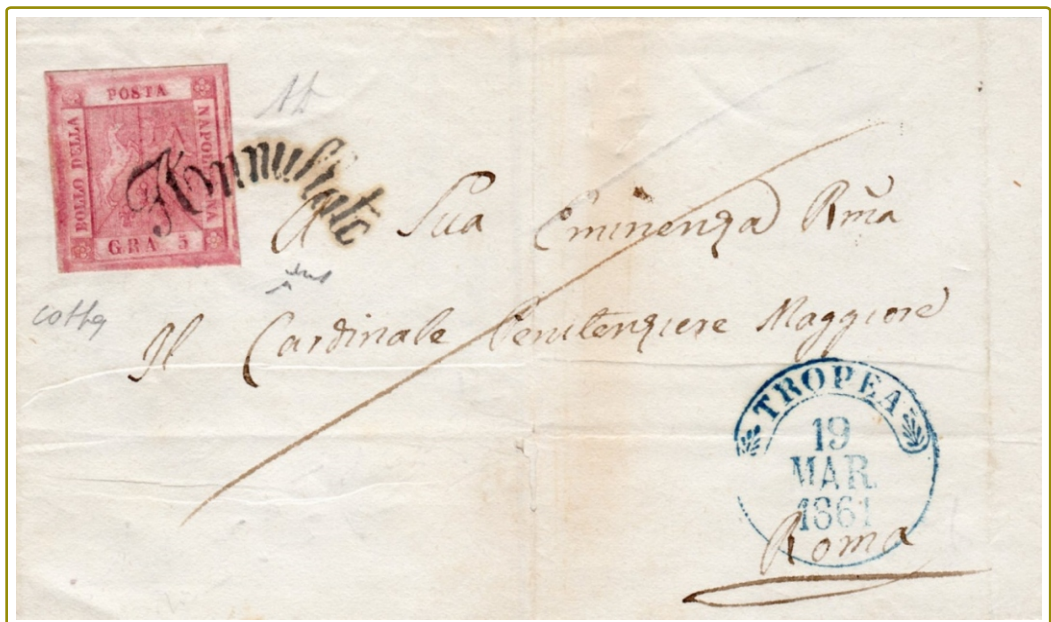 POSTA
BOLLO DELLA
NAPOLETANA
GRA 5
Annullato
A Sua Eminenza Rma
Il Cardinale Penitenziere Maggiore
TROPEA
19
MAR.
1861
Roma